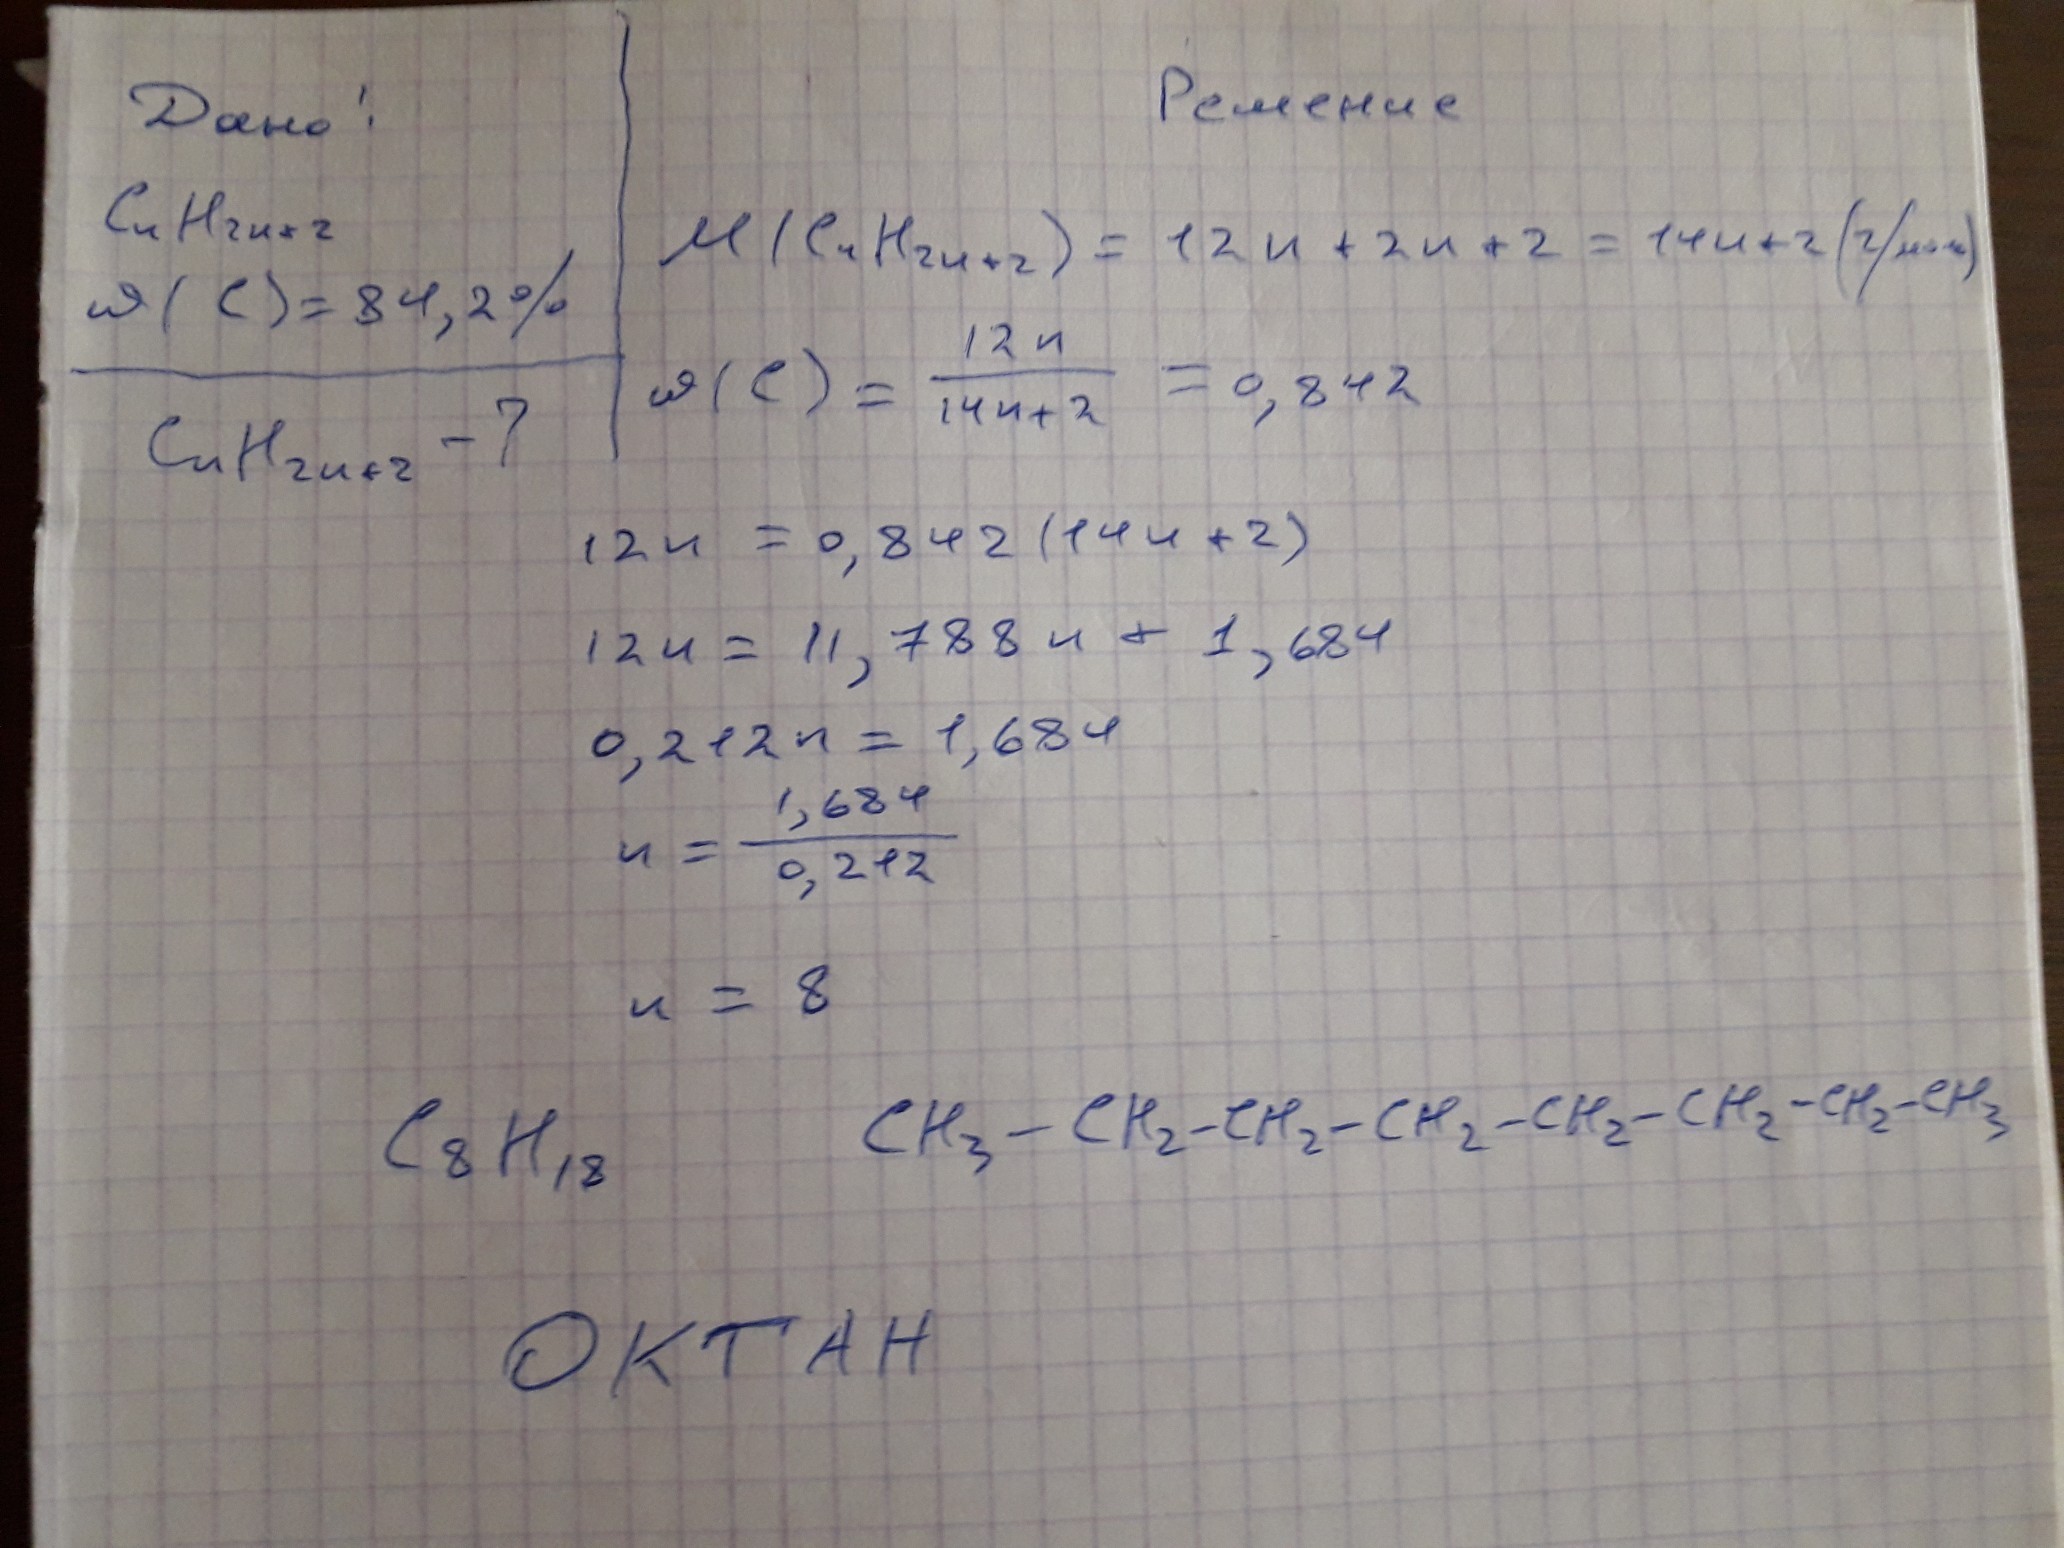 Дано:
CnH2n+2
ω(C)=84,2%
CnH2n+2 - ?
Решение
M(CnH2n+2) = 12n+2n+2 = 14n+2 (г/моль)
ω(C) = 12n/14n+2 = 0,842
12n = 0,842(14n+2)
12n = 11,788n + 1,684
0,212n = 1,684
n = 1,684/0,212
n = 8
C8H18 CH3-CH2-CH2-CH2-CH2-CH2-CH2-CH3
ОКТАН